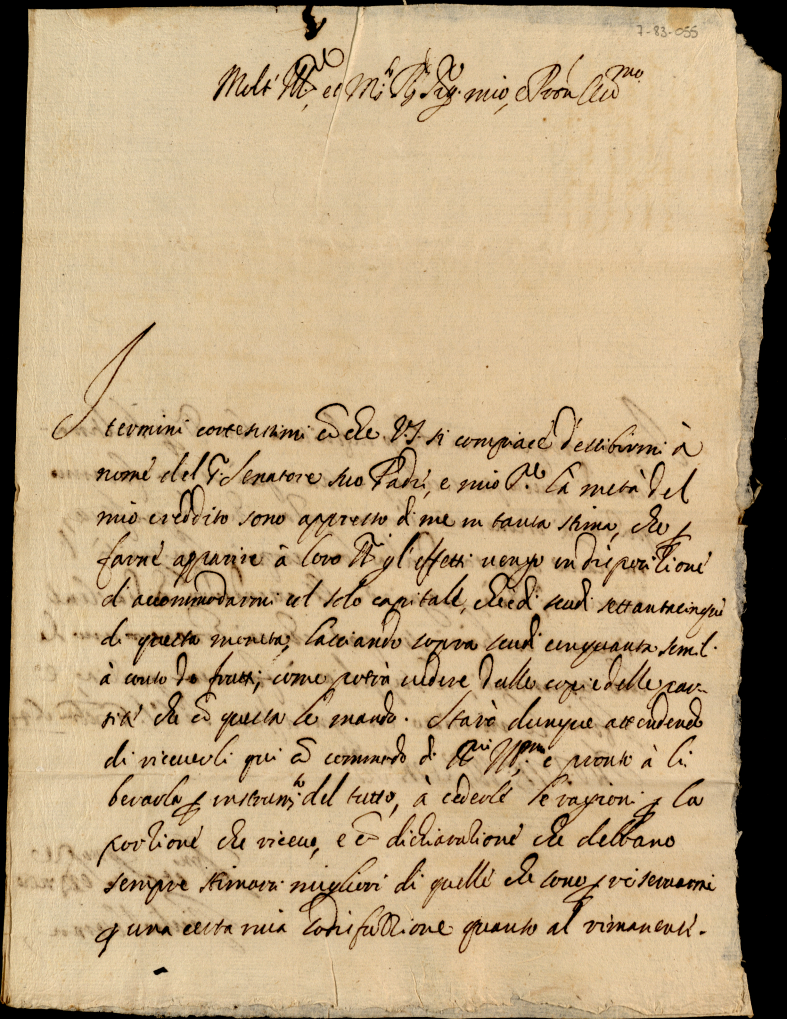 7-83-055
Molt' Ill.re et M. R.do Sig. mio, e Pron Col.mo
I termini cortesissimi cō che V.S. si compiace d'essibirmi à
nome del S. Senatore suo Padre, e mio Sig.re la metà del
mio creddito sono appresso di me in tanta stima, che ꝑ
farne apparire à loro SS.ri gl'effetti vengo in dispositione
d'accommodarmi col solo capitale, che è di scudi settantacinque
di questa moneta, lasciando sopra scudi cinquanta simil.
à conto de frutti, come potrà vedere dalle copie delle par-
tite che cō questa le mando. Starò dunque attendendo
di riceverli qui cō commodo di
e pronto à li
berarla ꝑ instrum.to del tutto, à cederle le ragioni ꝑ la
portione che ricevo, e cō dichiaratione che debbano
sempre stimarsi migliori di quelle che sono ꝑ riservarmi
ꝑ una certa mia sodisfattione quanto al rimanente.